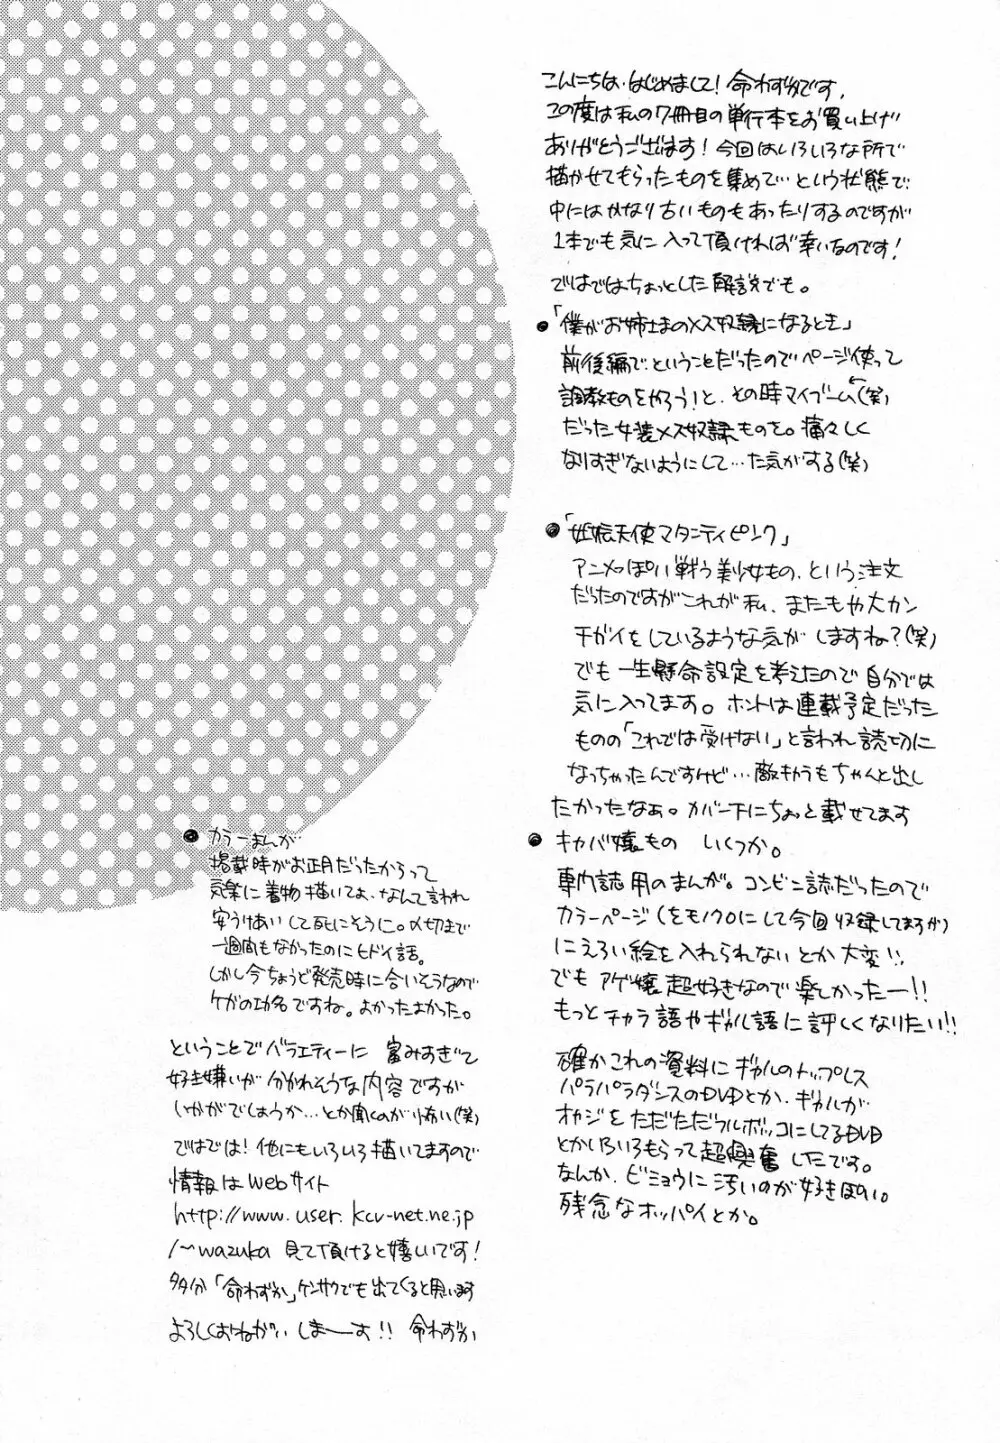 こんにちは、はじめまして！命わずかです。
この度は私の7冊目の単行本をお買い上げ
ありがとうございます！今回はいろいろな所で
描かせてもらったものを集めて…という状態で
中にはかなり古いものもあったりするのですが
1本でも気に入って頂ければ幸いなのです！
ではではちょっとした解説でも。
●「僕がお姉さまのメス奴隷になるとき」
前後編でということだったのでページ使って
調教ものをやろう！と、その時マイブーム←(笑)
だった女装メス奴隷ものを。痛々しく
なりすぎないようにして…た気がする(笑)
●「妊娠天使マタニティピンク」
アニメっぽい戦う美少女もの、という注文
だったのですがこれが私、またもや大カン
チガイをしているような気がしますね？(笑)
でも一生懸命設定を考えたので自分では
気に入ってます。ホントは連載予定だった
ものの「これでは受けない」と言われ読切に
なっちゃったんですけど…敵キャラもちゃんと出し
たかったなぁ。カバー下にちょっと載せてます
●キャバ嬢もの いくつか。
専門誌用のまんが。コンビニ誌だったので
カラーページ(をモノクロにして今回収録してますが)
にえろい絵を入れられないとか大変!!
でもアゲ嬢超好きなので楽しかったー!!
もっとチャラ語やギャル語に詳しくなりたい!!
確かこれの資料にギャルのトップレス
パラパラダンスのDVDとか、ギャルが
オヤジをただただフルボッコにしてるDVD
とかいろいろもらって超興奮したです。
なんか、ビミョウに汚いのが好きぽい。
残念なオッパイとか。
●カラーまんが
掲載時がお正月だったからって
気楽に着物描いてよ、なんて言われ
安うけあいして死にそうに。〆切まで
一週間もなかったのにヒドイ話。
しかし今ちょうど発売時に合いそうなので
ケガの功名ですね。よかったよかった。
ということでバラエティーに富みすぎて
好き嫌いが分かれそうな内容ですが
いかがでしょうか…とか聞くのが怖い(笑)
ではでは！他にもいろいろ描いてますので
情報はWebサイト
http://www.user.kcv-net.ne.jp
/~wazuka 見て頂けると嬉しいです！
多分「命わずか」ケンサクでも出てくると思います
よろしくおねがいしまーす!! 命わずか